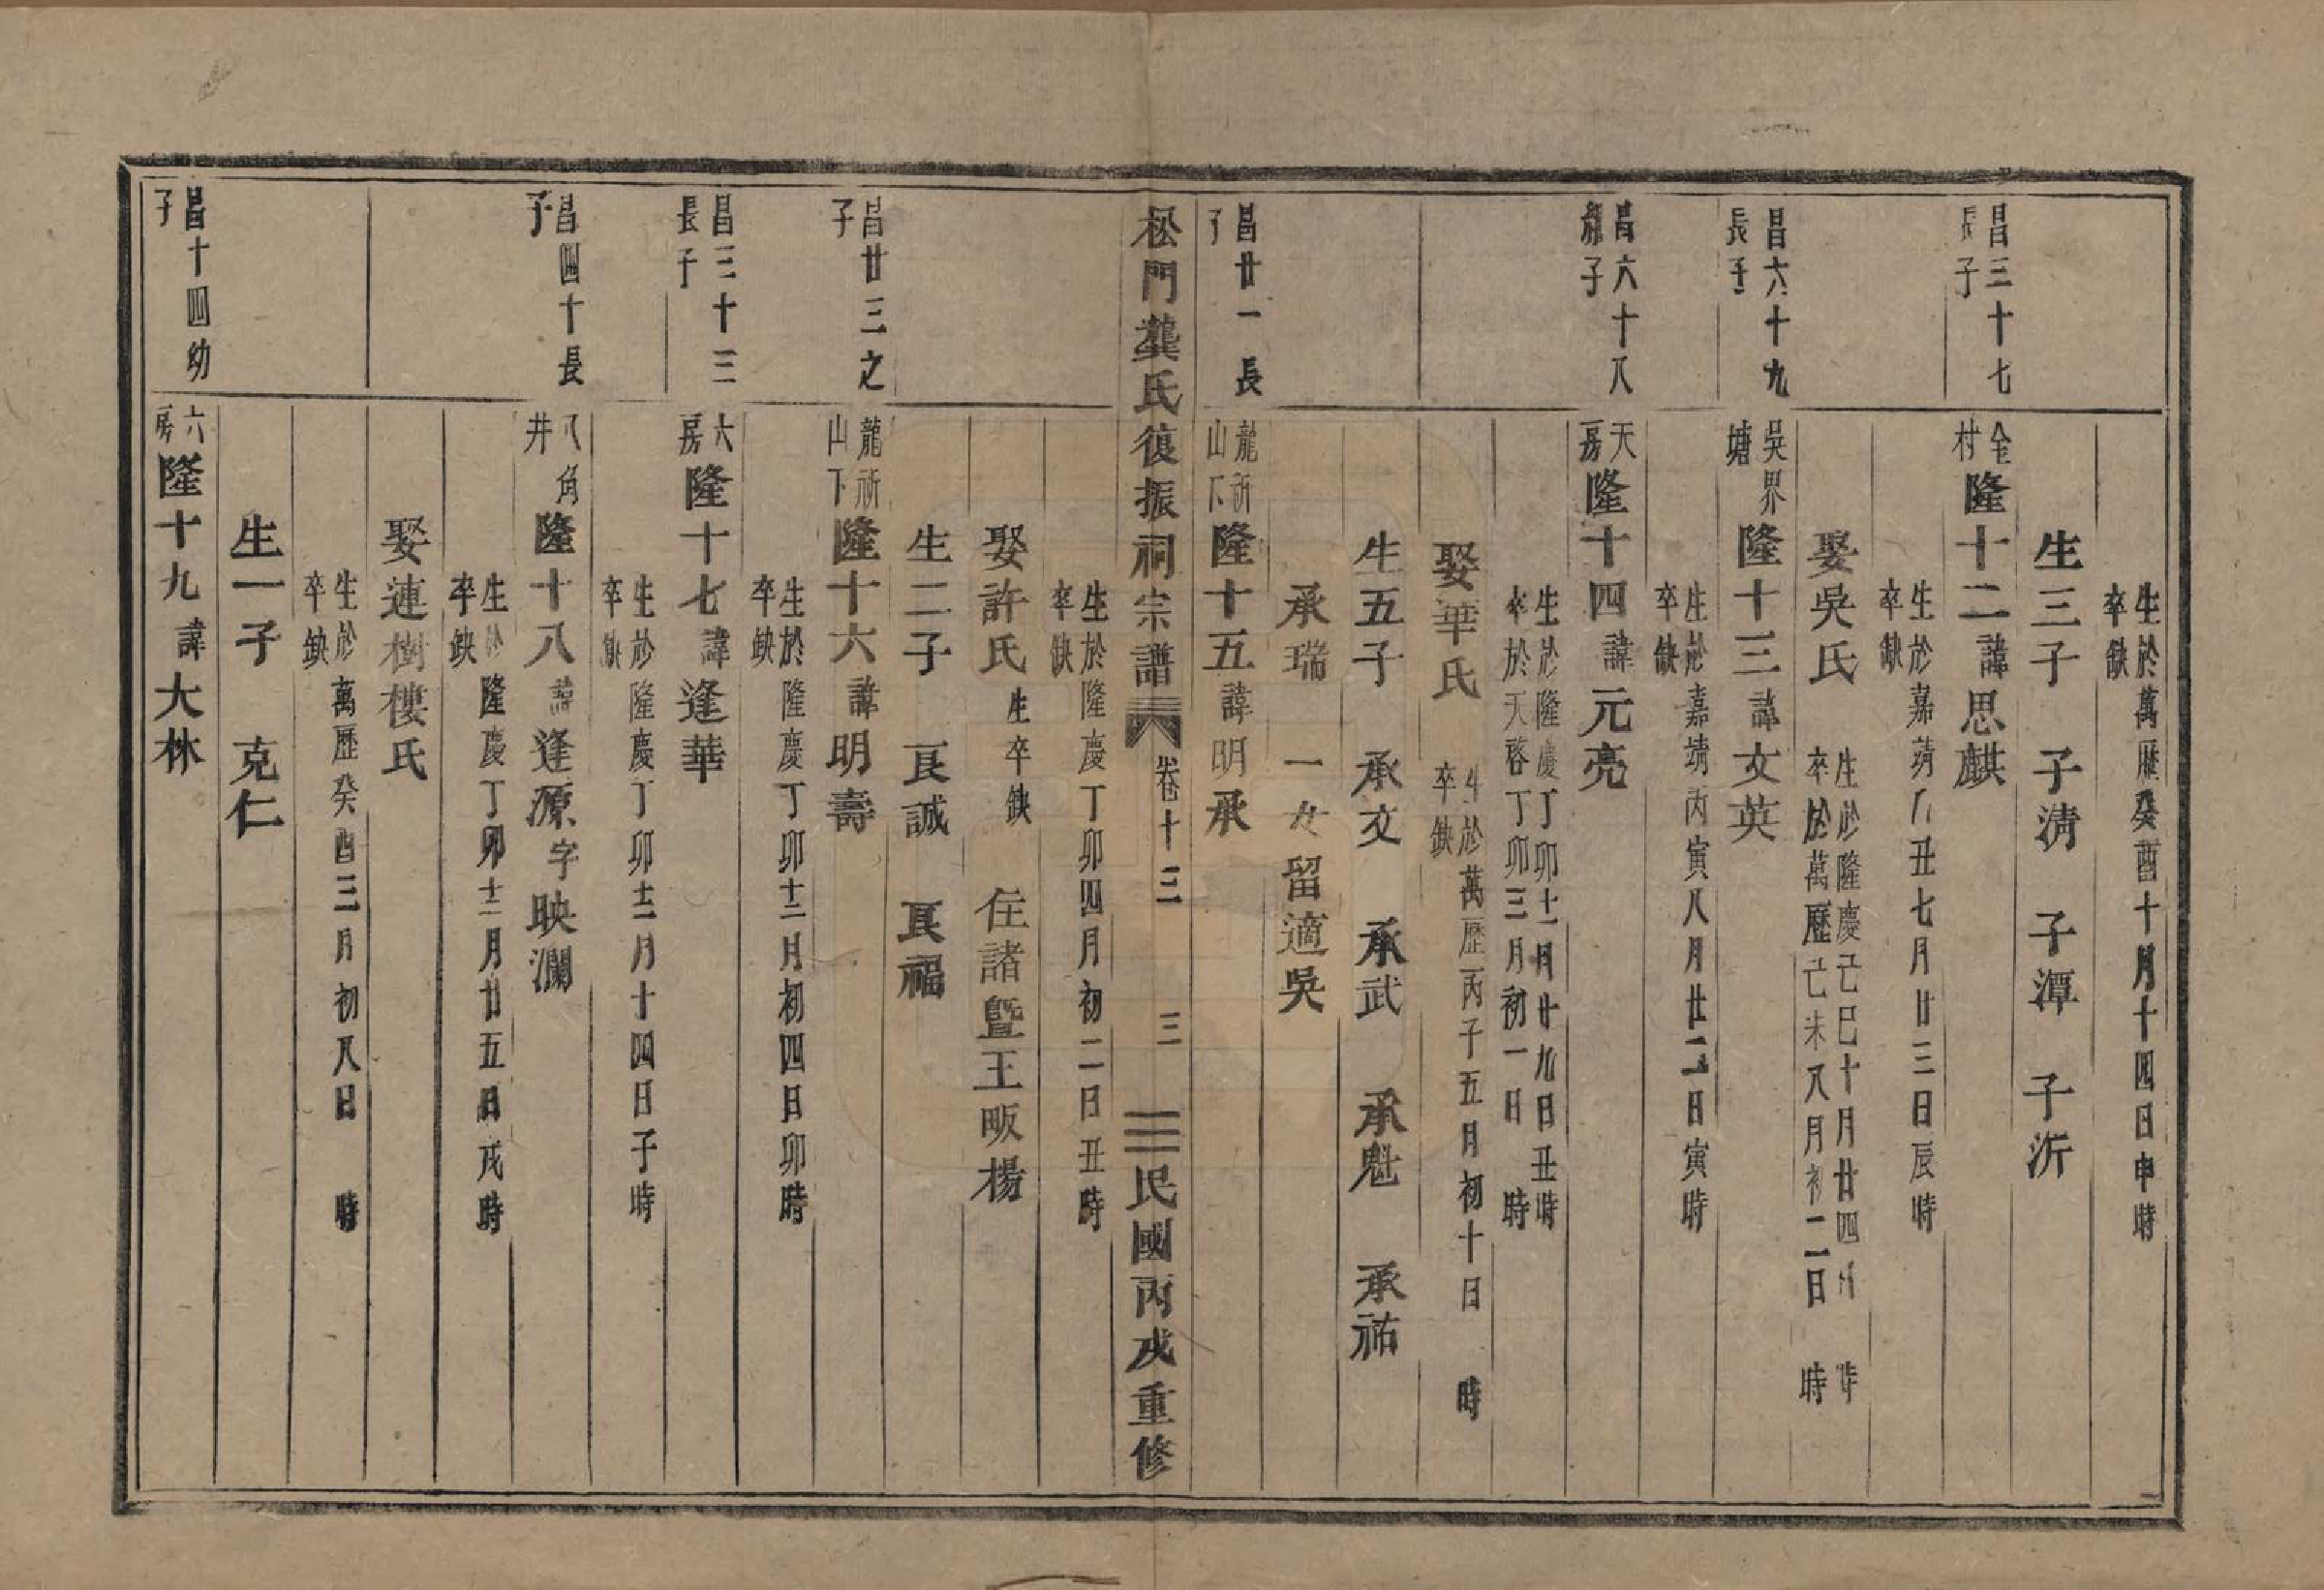 生於萬歷癸酉十月十四日申時
卒缺
生三子　子清　子潭　子沂
昌三十七
長子
金村隆十二諱思麒
生於嘉靖丑七月廿三日辰時
卒缺
娶吳氏
生於隆慶己巳十月廿四日　時
卒於萬歷己未八月初二日　時
昌六十九
長子
吳界塘隆十三諱文英
生於嘉靖丙寅八月廿二日寅時
卒缺
昌六十八
繼子
天房隆十四諱元亮
生於隆慶丁卯十二月廿九日丑時
卒於天啓丁卯三月初一日　時
娶華氏
生於萬歷丙子五月初十日　時
卒缺
生五子　承文　承武　承魁　承祐
承瑞　一女留適吳
昌廿一長
子
龍祈山下隆十五諱明承
松門龔氏復振祠宗譜　卷十三　三　民國丙戌重修
生於隆慶丁卯四月初二日丑時
卒缺
娶許氏生卒缺　住諸暨王畈楊
生二子　良誠　良福
昌廿三之
子
龍祈山下隆十六諱明壽
生於隆慶丁卯十二月初四日卯時
卒缺
昌三十三
長子
六房隆十七諱逢華
生於隆慶丁卯十二月十四日子時
卒缺
昌四十長
子
八角井隆十八諱逢源字映瀾
生於隆慶丁卯十二月廿五日戌時
卒缺
娶連樹樓氏
生於萬歷癸酉三月初八日　時
卒缺
生一子　克仁
昌十四幼
子
六房隆十九諱大林